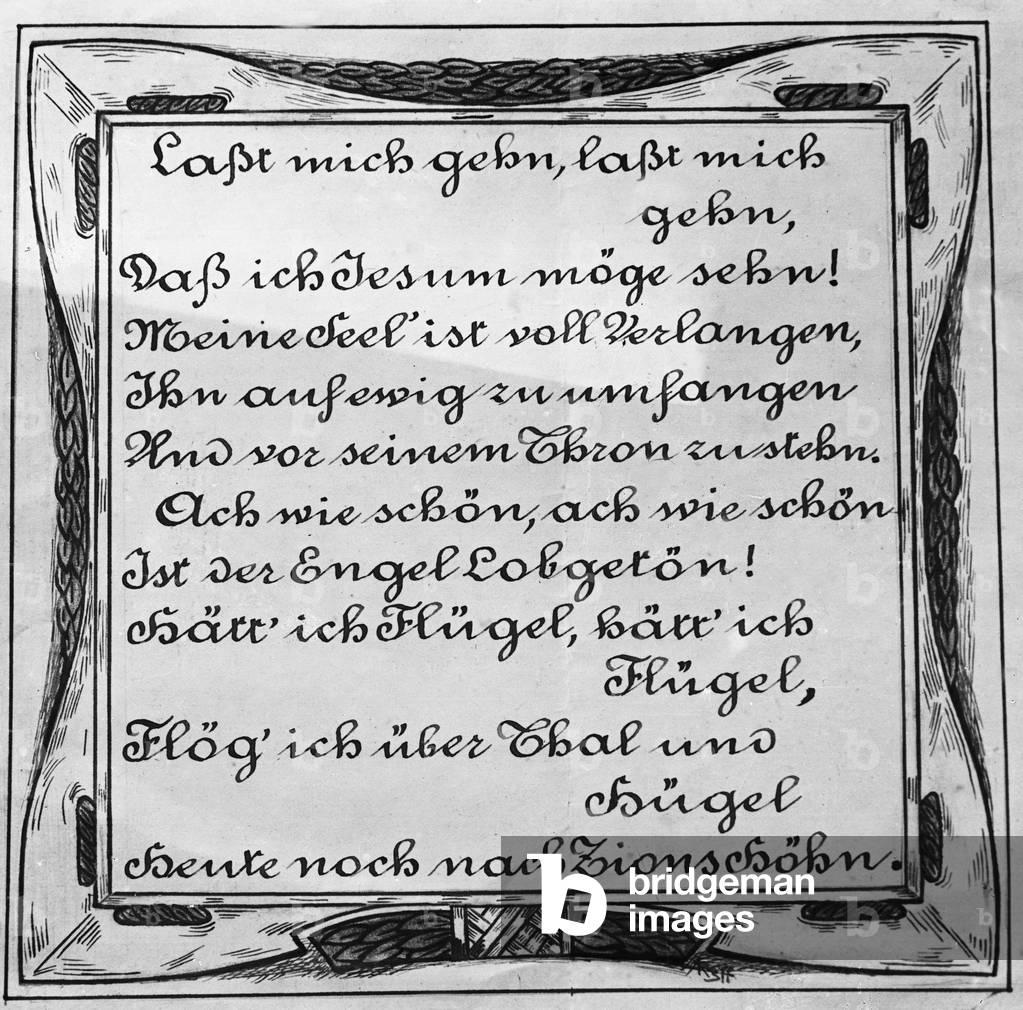 Laßt mich gehn, laßt mich
gehn,
Daß ich Jesum möge sehn!
Meine Seel' ist voll Verlangen,
Ihn auf ewig zu umfangen
Und vor seinem Thron zu stehn.
Ach wie schön, ach wie schön
Ist der Engel Lobgetön!
Hätt' ich Flügel, hätt' ich
Flügel,
Flög' ich über Thal und
Hügel
Heute noch nach Zions Höhn.
bridgeman
images